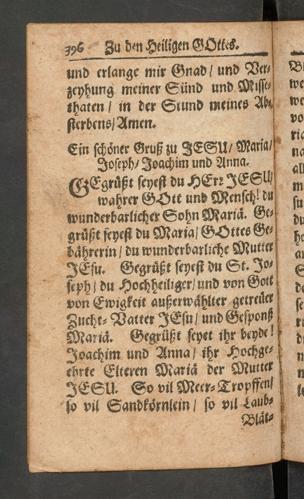 396 Zu den Heiligen GOttes.
und erlange mir Gnad / und Ver-
zeyhung meiner Sünd und Misse-
thaten / in der Stund meines Ab-
sterbens / Amen.
Ein schöner Gruß zu JESU / Maria /
Joseph / Joachim und Anna.
GEgrüßt seyest du HErr JESU /
wahrer GOtt und Mensch! du
wunderbarlicher Sohn Mariä. Ge-
grüßt seyest du Maria / GOttes Ge-
bährerin / du wunderbarliche Mutter
JEsu. Gegrüßt seyest du St. Jo-
seph / du Hochheiliger / und von Gott
von Ewigkeit außerwählter getreüer
Zucht-Vatter JEsu / und Gesponß
Mariä. Gegrüßt seyet ihr beyde!
Joachim und Anna / ihr Hochge-
ehrte Elteren Mariä der Mutter
JESU. So vil Meer-Tropffen /
so vil Sandkörnlein / so vil Laub-
Blät-